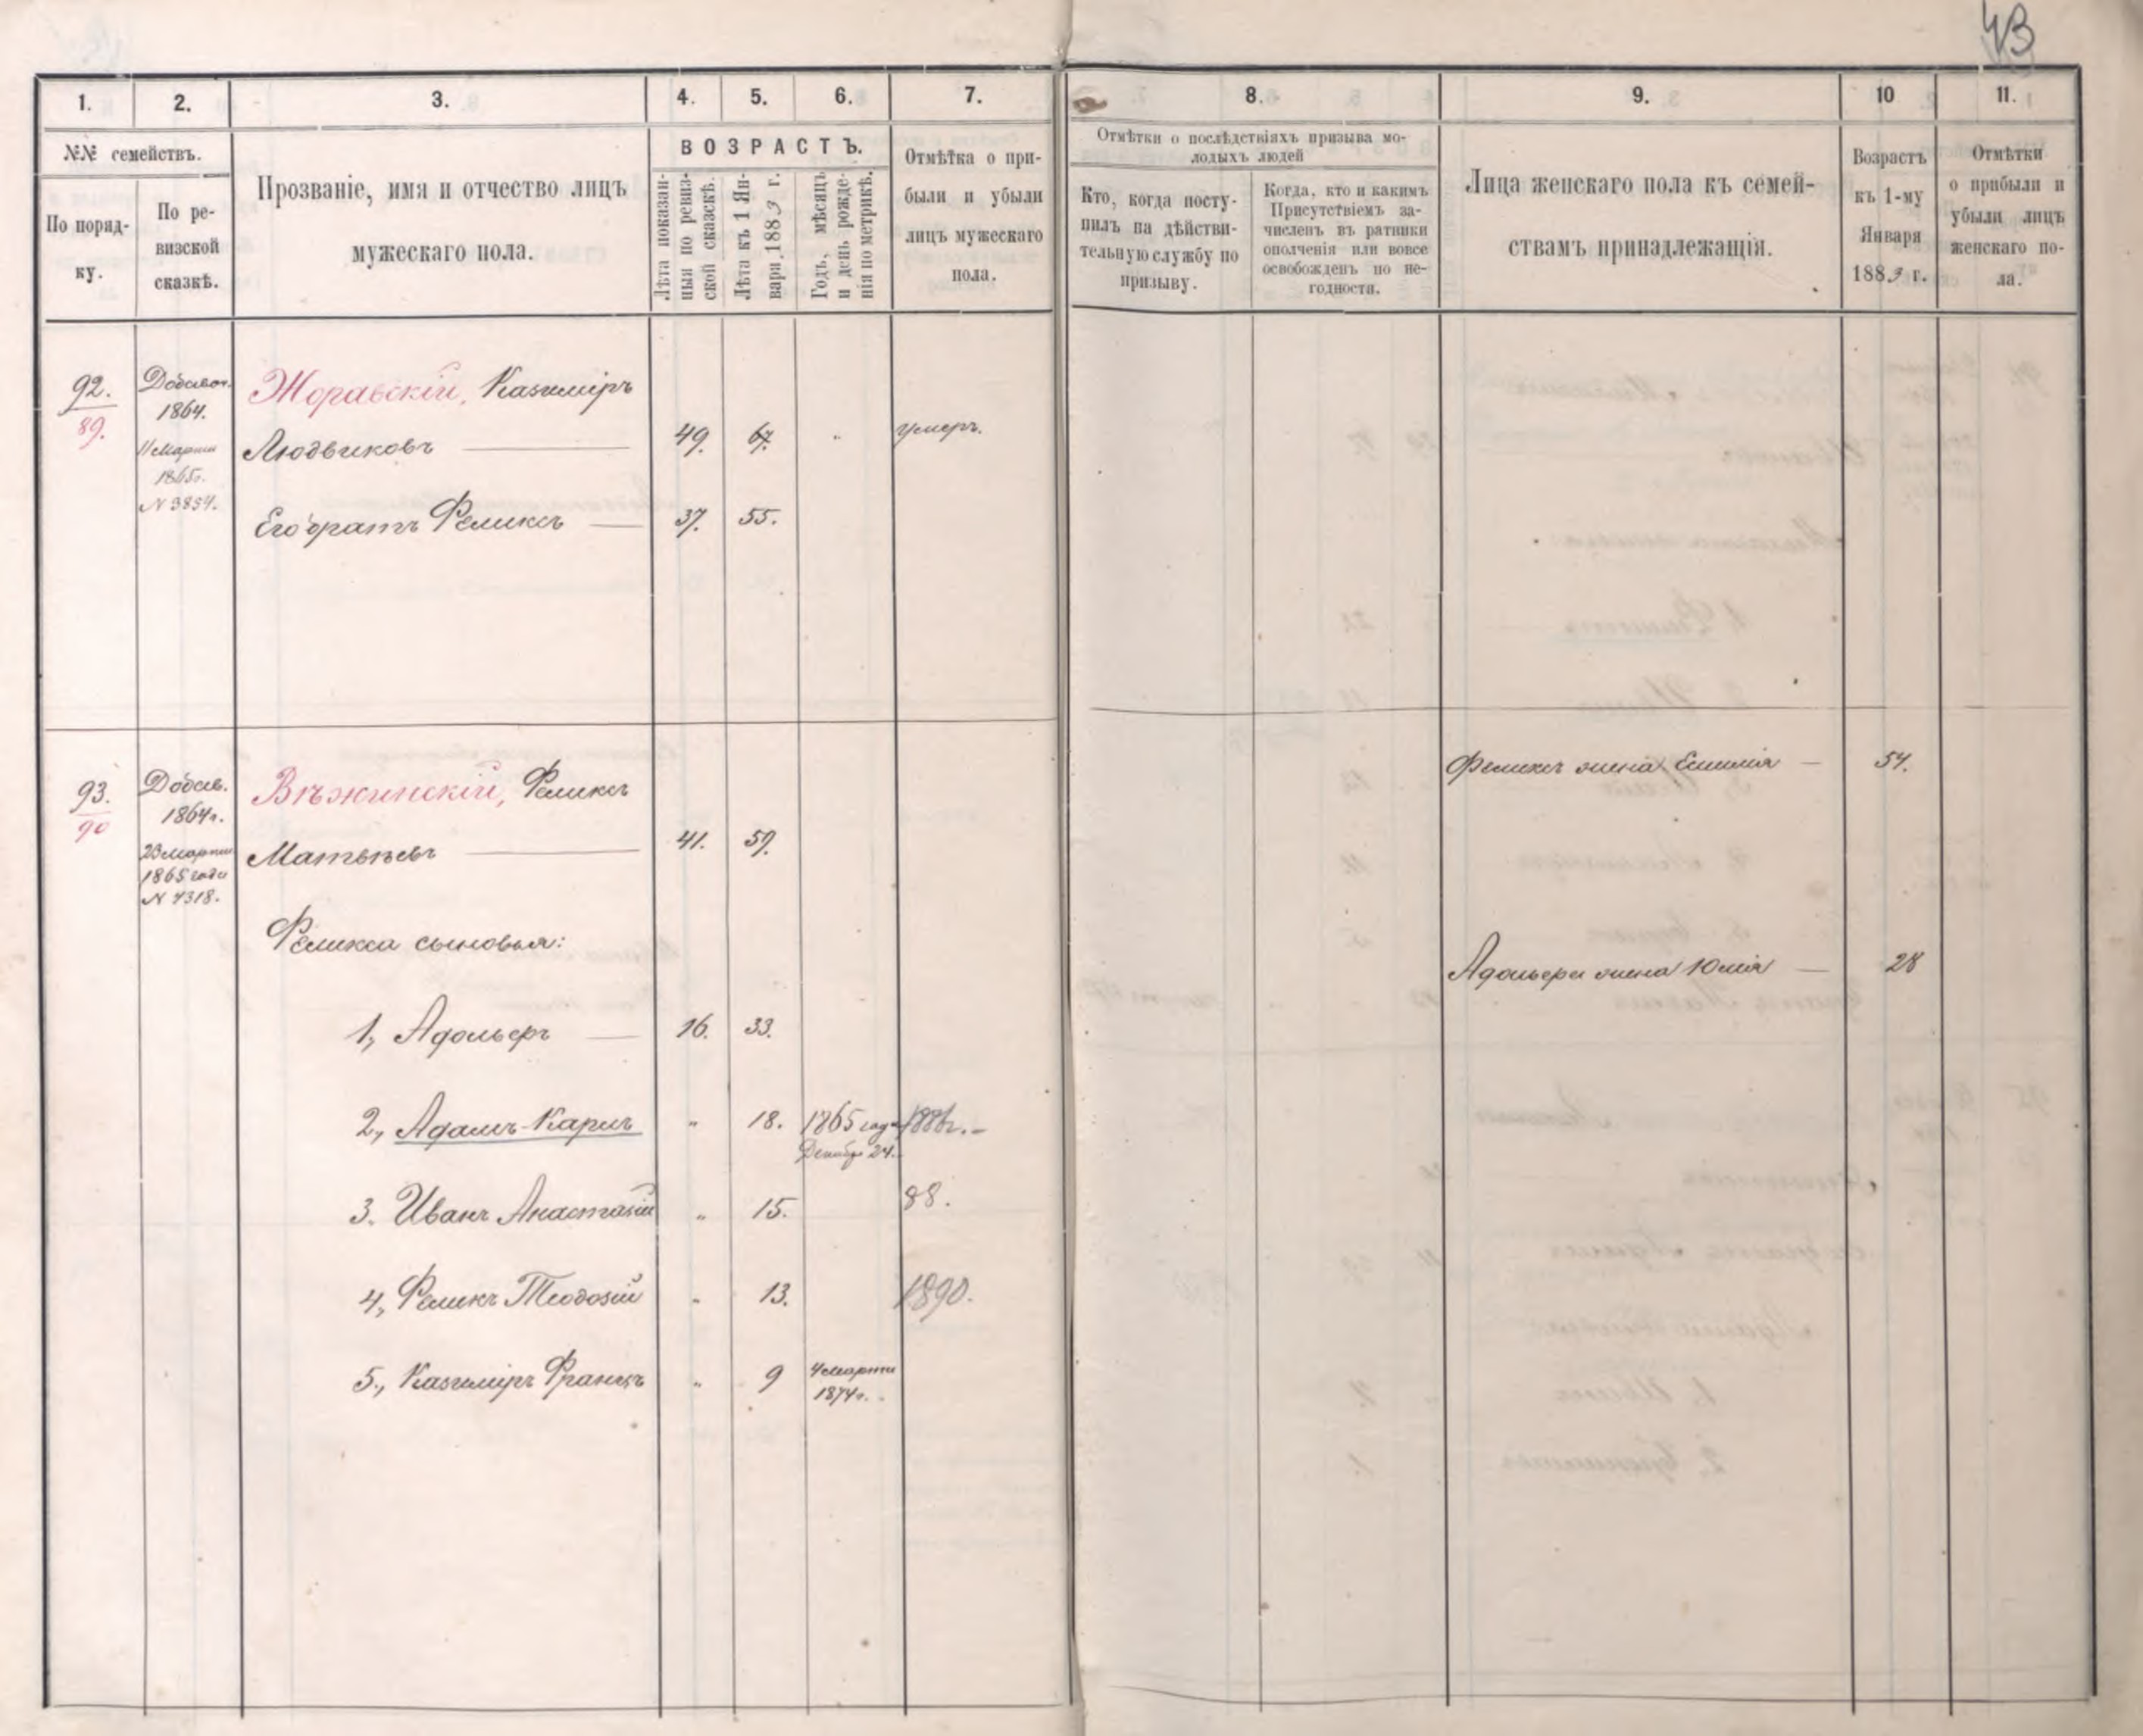 43
1. 2. 3. 4. 5. 6. 7. 8. 9. 10 11.
№№ семействъ.
По поряд-
ку.
По ре-
визской
сказкѣ.
Прозваніе, имя и отчество лицъ
мужескаго пола.
ВОЗРАСТЪ.
Лѣта показан-
ныя по ревиз-
ской сказкѣ.
Лѣта къ 1 Ян-
варя 1883 г.
Годъ, мѣсяцъ
и день рожде-
нія по метрикѣ.
Отмѣтка о при-
были и убыли
лицъ мужескаго
пола.
Отмѣтки о послѣдствіяхъ призыва мо-
лодыхъ людей
Кто, когда посту-
пилъ на дѣйстви-
тельную службу по
призыву.
Когда, кто и какимъ
Присутствіемъ за-
численъ въ ратники
ополченія или вовсе
освобожденъ по не-
годности.
Лица женскаго пола къ семей-
ствамъ принадлежащія.
Возрастъ
къ 1-му
Января
1883 г.
Отмѣтки
о прибыли и
убыли лицъ
женскаго по-
ла.
92.
89.
Добавоч.
1864.
11 Марта
1865г.
N 3854.
Жоравскій, Казиміръ
Людвиковъ — 49. 67. " умеръ.
Его братъ Феликсъ — 37. 55.
93.
90
Добав.
1864г.
23 Марта
1865 года
N 4318.
Вѣжинскій, Феликсъ
Матвѣевъ — 41. 59.
Феликсъ жена Емилія — 54.
Феликса сыновья:
Адольфа жена Юлія — 28
1, Адольфъ — 16. 33.
2, Адамъ-Карлъ " 18. 1865 года 1886г.-
Декабр 24.
3. Иванъ Анастазій " 15. 88.
4, Феликъ Теодозій " 13. 1890.
5, Казиміръ Францъ " 9 4 Марта
1874г.